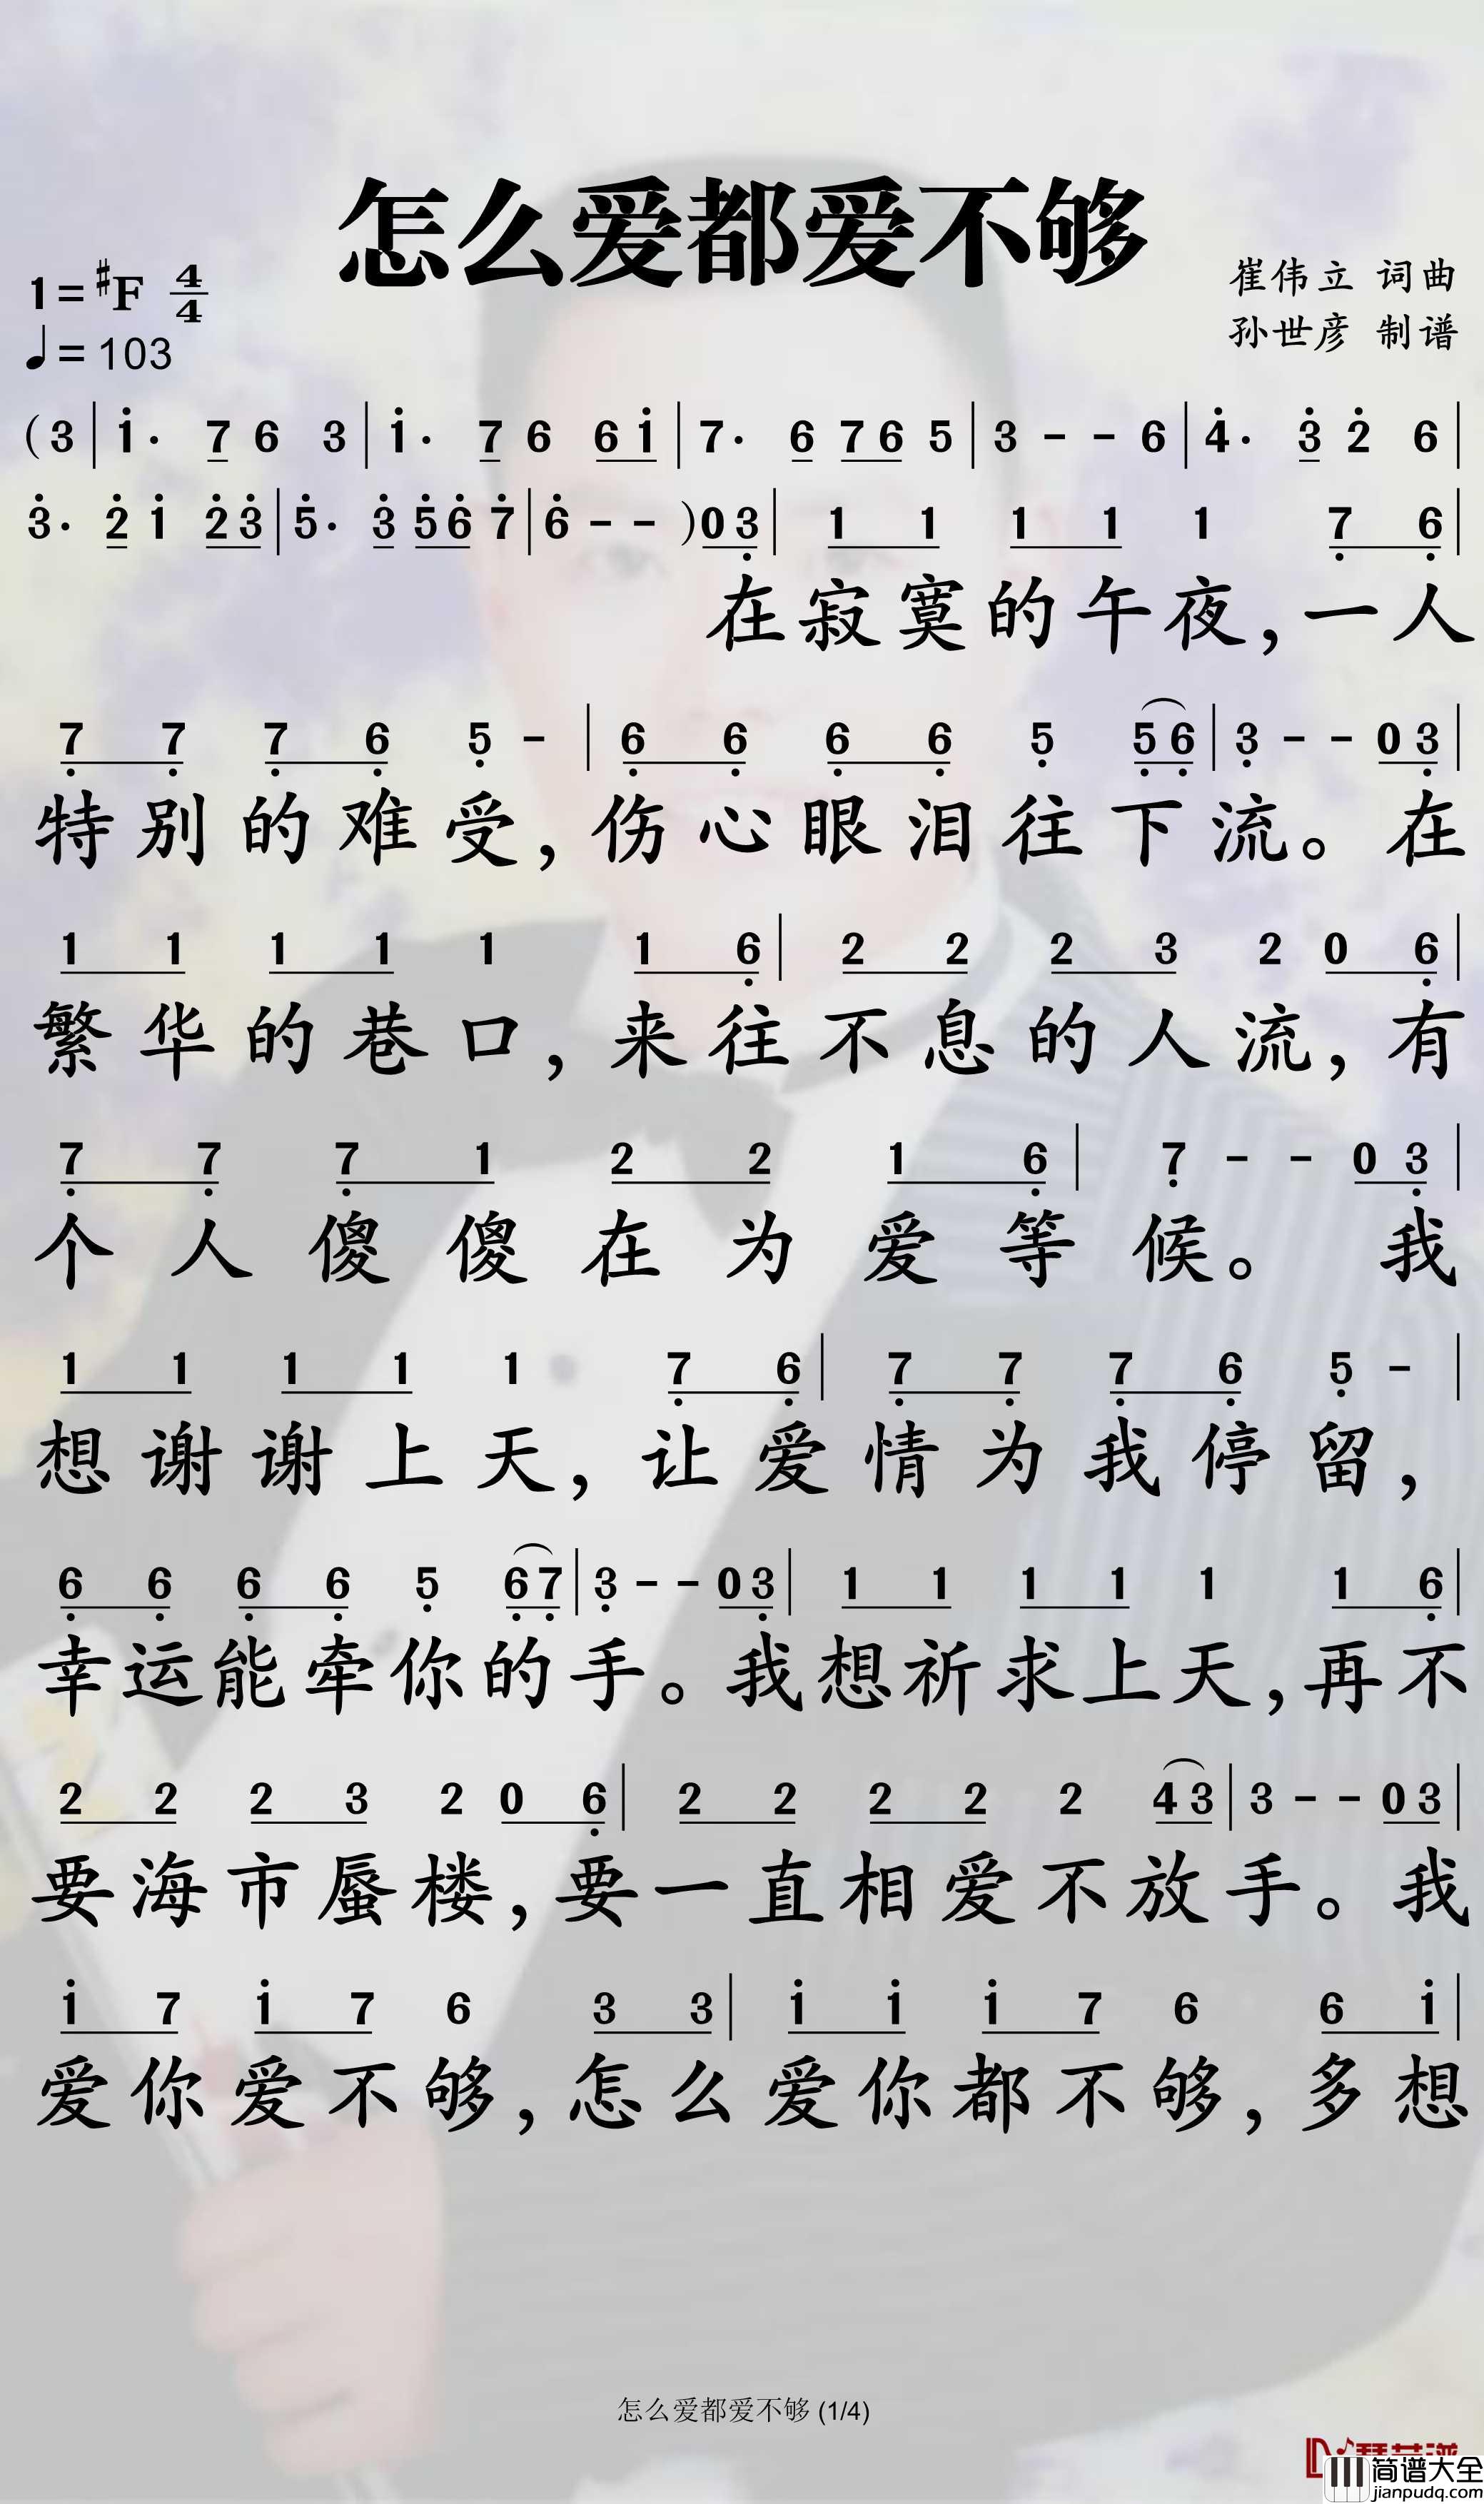 怎么爱都爱不够
1=#F 4/4
♩=103
崔伟立 词曲
孙世彦 制谱
(3 | i· 7 6 3 | i· 7 6 6 i | 7· 6 7 6 5 | 3 - - 6 | 4· 3 2 6 |
3· 2 i 2 3 | 5· 3 5 6 7 | 6 - - ) 0 3 | 1 1 1 1 1 7 6 |
在寂寞的午夜,一人
7 7 7 6 5 - | 6 6 6 6 5 5 6 | 3 - - 0 3 |
特别的难受,伤心眼泪往下流。在
1 1 1 1 1 1 6 | 2 2 2 3 2 0 6 |
繁华的巷口,来往不息的人流,有
7 7 7 1 2 2 1 6 | 7 - - 0 3 |
个人傻傻在为爱等候。我
1 1 1 1 1 7 6 | 7 7 7 6 5 - |
想谢谢上天,让爱情为我停留,
6 6 6 6 5 6 7 | 3 - - 0 3 | 1 1 1 1 1 1 6 |
幸运能牵你的手。我想祈求上天,再不
2 2 2 3 2 0 6 | 2 2 2 2 2 4 3 | 3 - - 0 3 |
要海市蜃楼,要一直相爱不放手。我
i 7 i 7 6 3 3 | i i i 7 6 6 i |
爱你爱不够,怎么爱你都不够,多想
怎么爱都爱不够 (1/4)
简谱大全
jianpudq.com